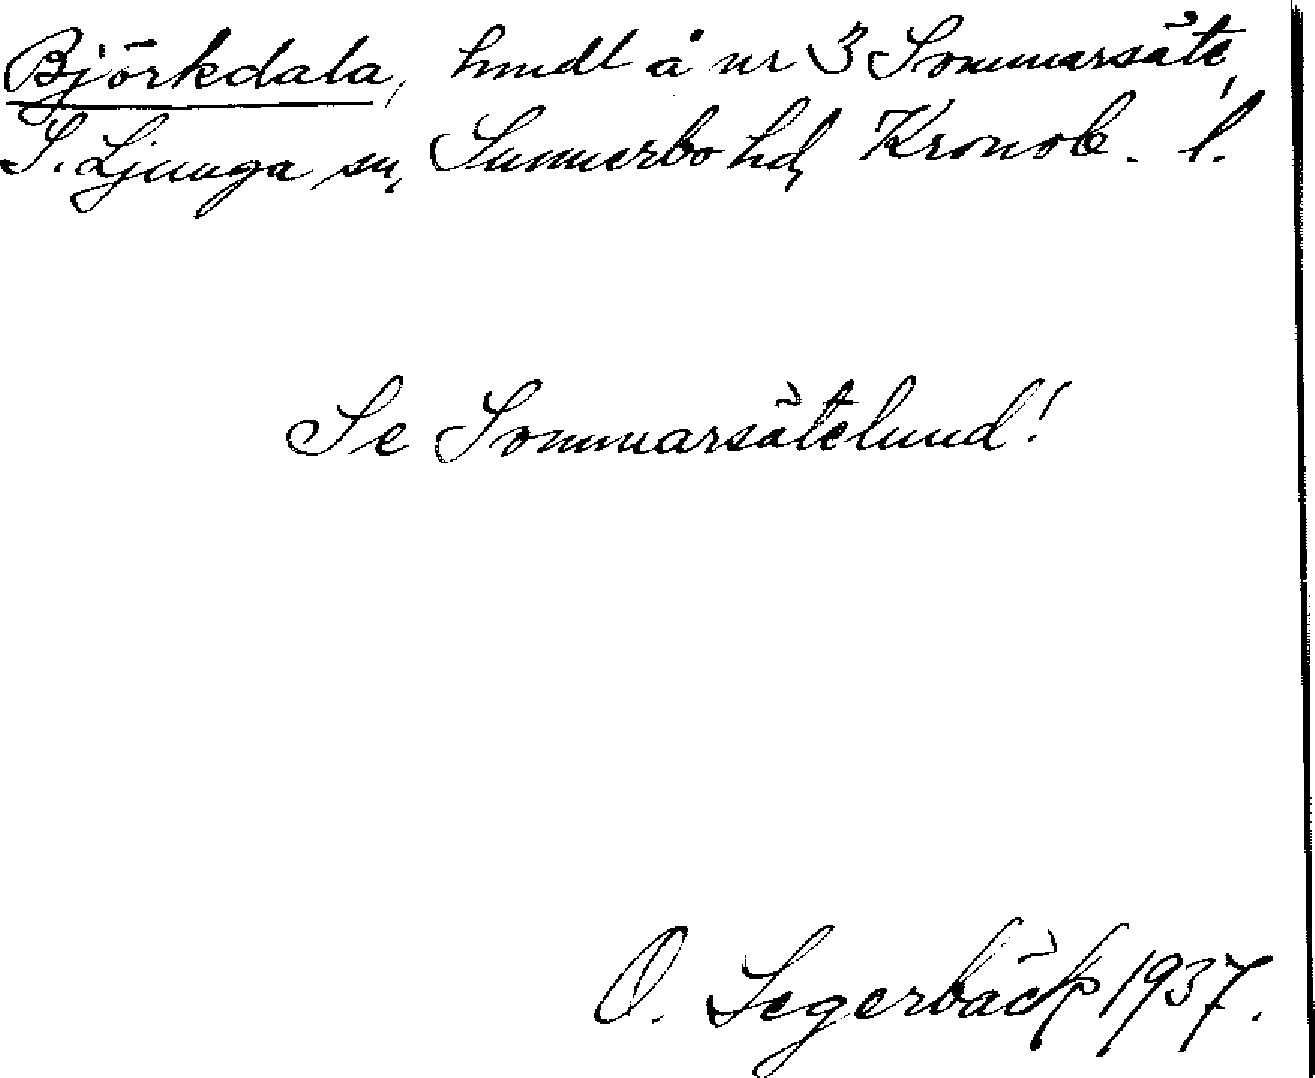 Björkdala, hmdl å nr 3 Sommarsäte,
S. Ljunga sn, Sunnerbo hd, Kronob. l.
Se Sommarsätelund!
O. Segerbäck 1937.